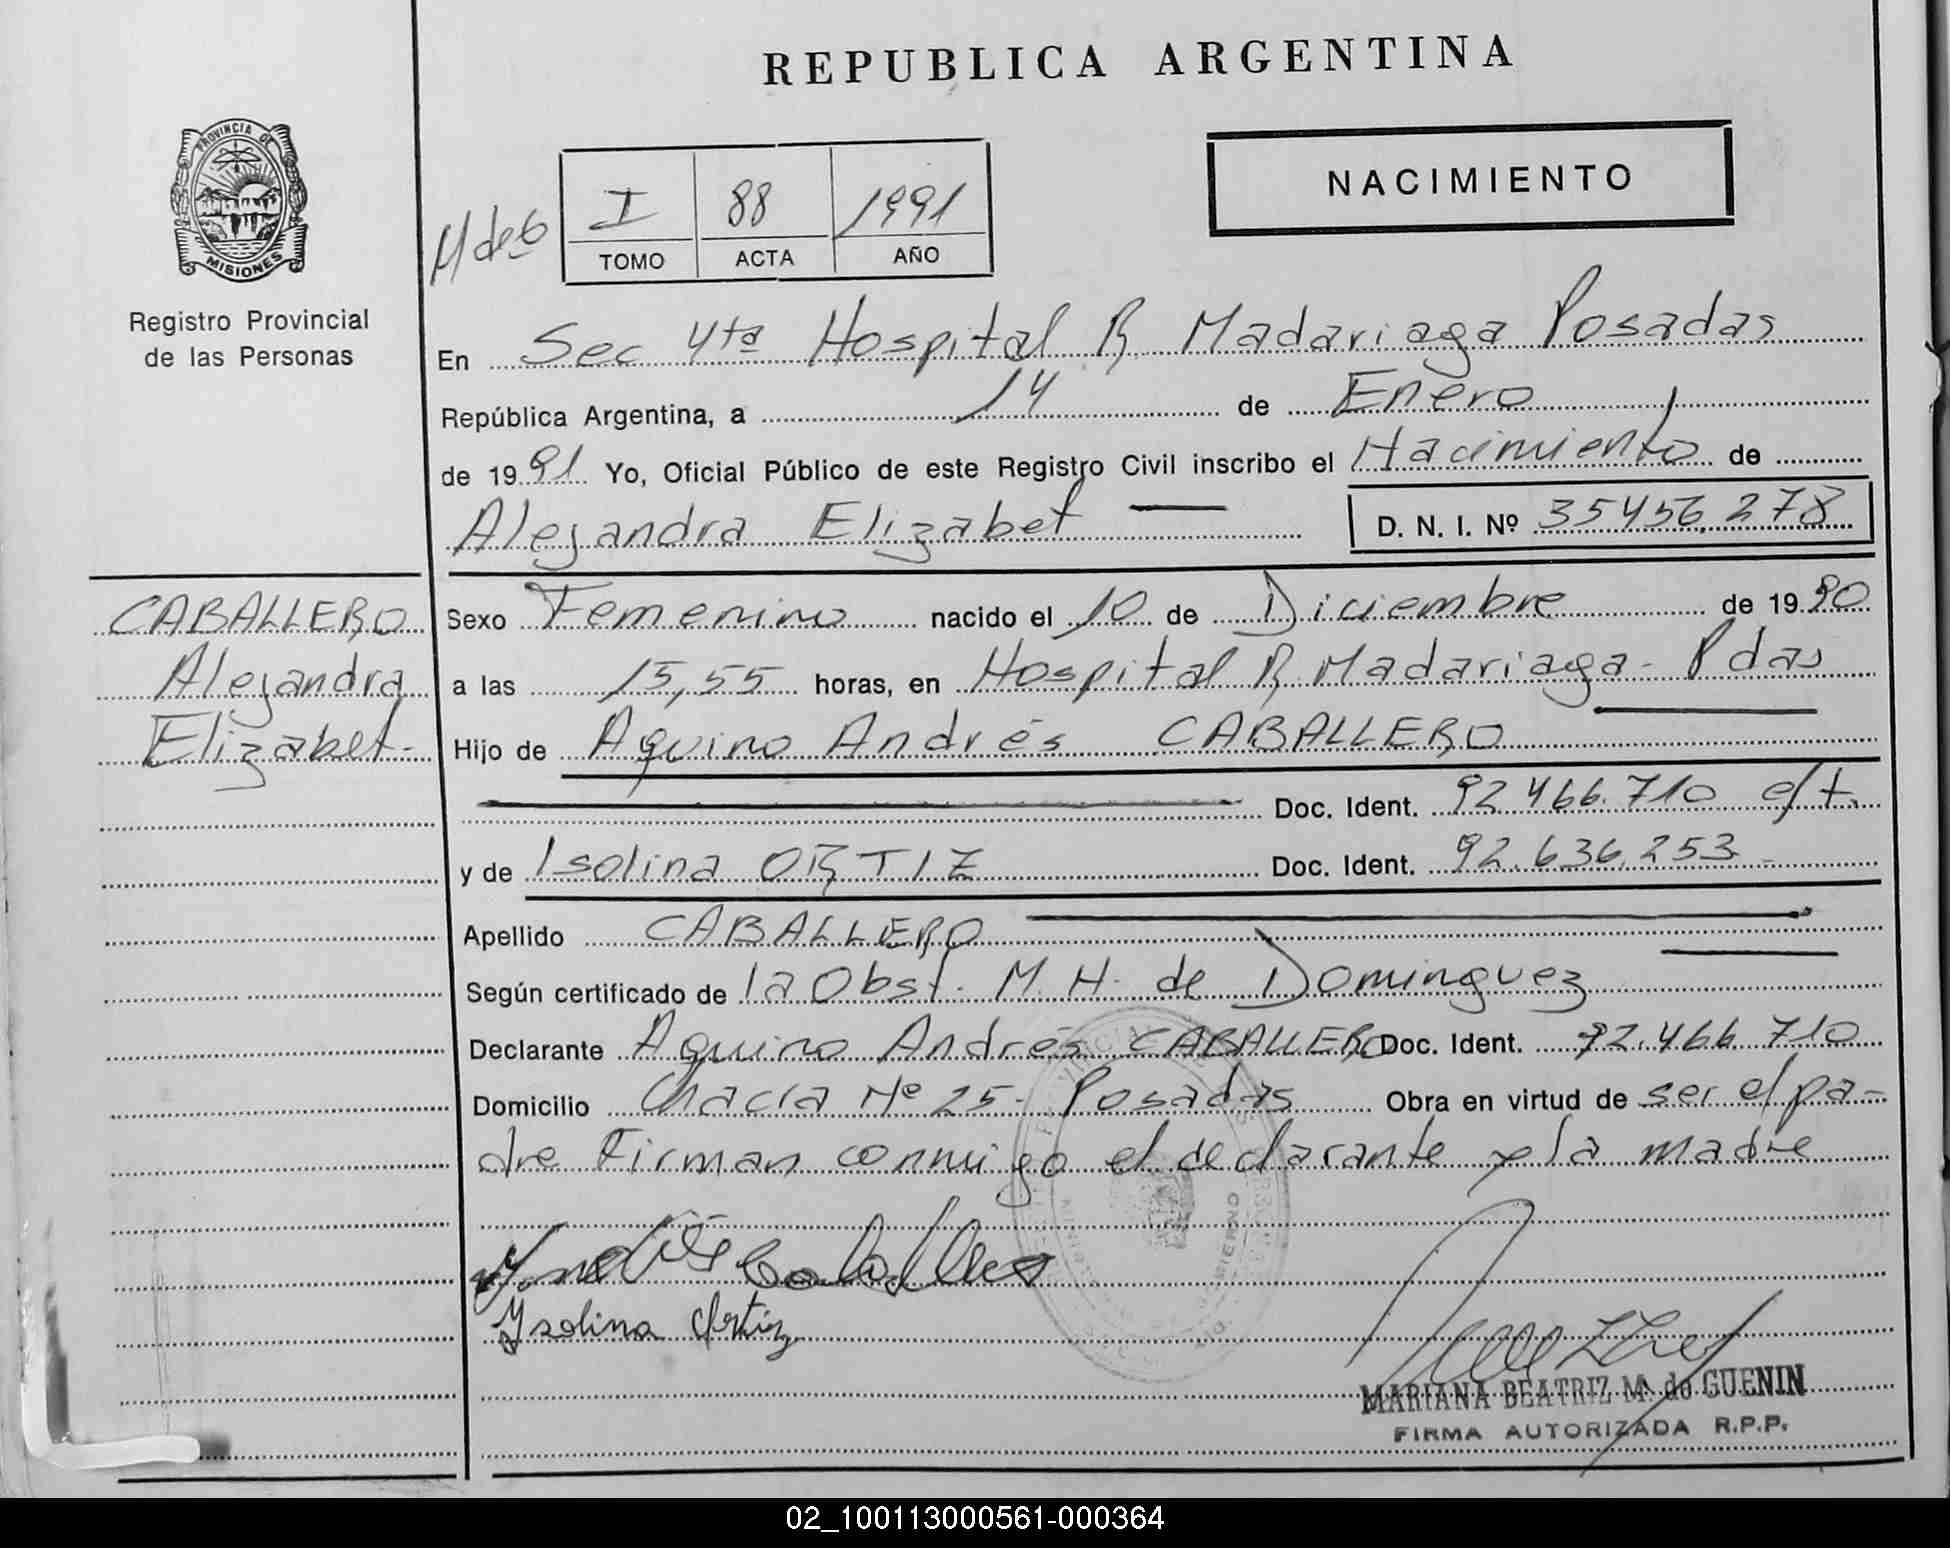 REPUBLICA ARGENTINA
PROVINCIA DE
MISIONES
Registro Provincial
de las Personas
NACIMIENTO
M de 6
I 88 1991
TOMO ACTA AÑO
En Sec 4ta Hospital R Madariaga Posadas
República Argentina, a 14 de Enero
de 1991 Yo, Oficial Público de este Registro Civil inscribo el Nacimiento de
Alejandra Elizabet — D. N. I. Nº 35456,278
CABALLERO
Alejandra
Elizabet-
Sexo Femenino nacido el 10 de Diciembre de 1990
a las 15,55 horas, en Hospital R Madariaga - Pdas
Hijo de Aquino Andrés CABALLERO
Doc. Ident. 92.466.710 e/t.
y de Isolina ORTIZ Doc. Ident. 92.636.253-
Apellido CABALLERO
Según certificado de la Obst. M. H. de Dominguez
Declarante Aquino Andrés CABALLERO Doc. Ident. 92.466 710
Domicilio Chacra Nº 25- Posadas Obra en virtud de ser el pa-
dre Firman conmigo el declarante y la madre
Andrés Caballero
Ysolina Ortiz
MARIANA BEATRIZ M. de GUENIN
FIRMA AUTORIZADA R.P.P.
02_100113000561-000364